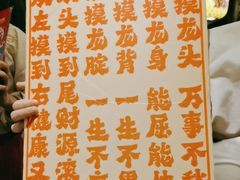 摸龙头 万事不愁
摸龙身 能屈能
摸龙背 一生不累
摸龙腚 一生不
头摸到尾财源滚
左摸到右健康